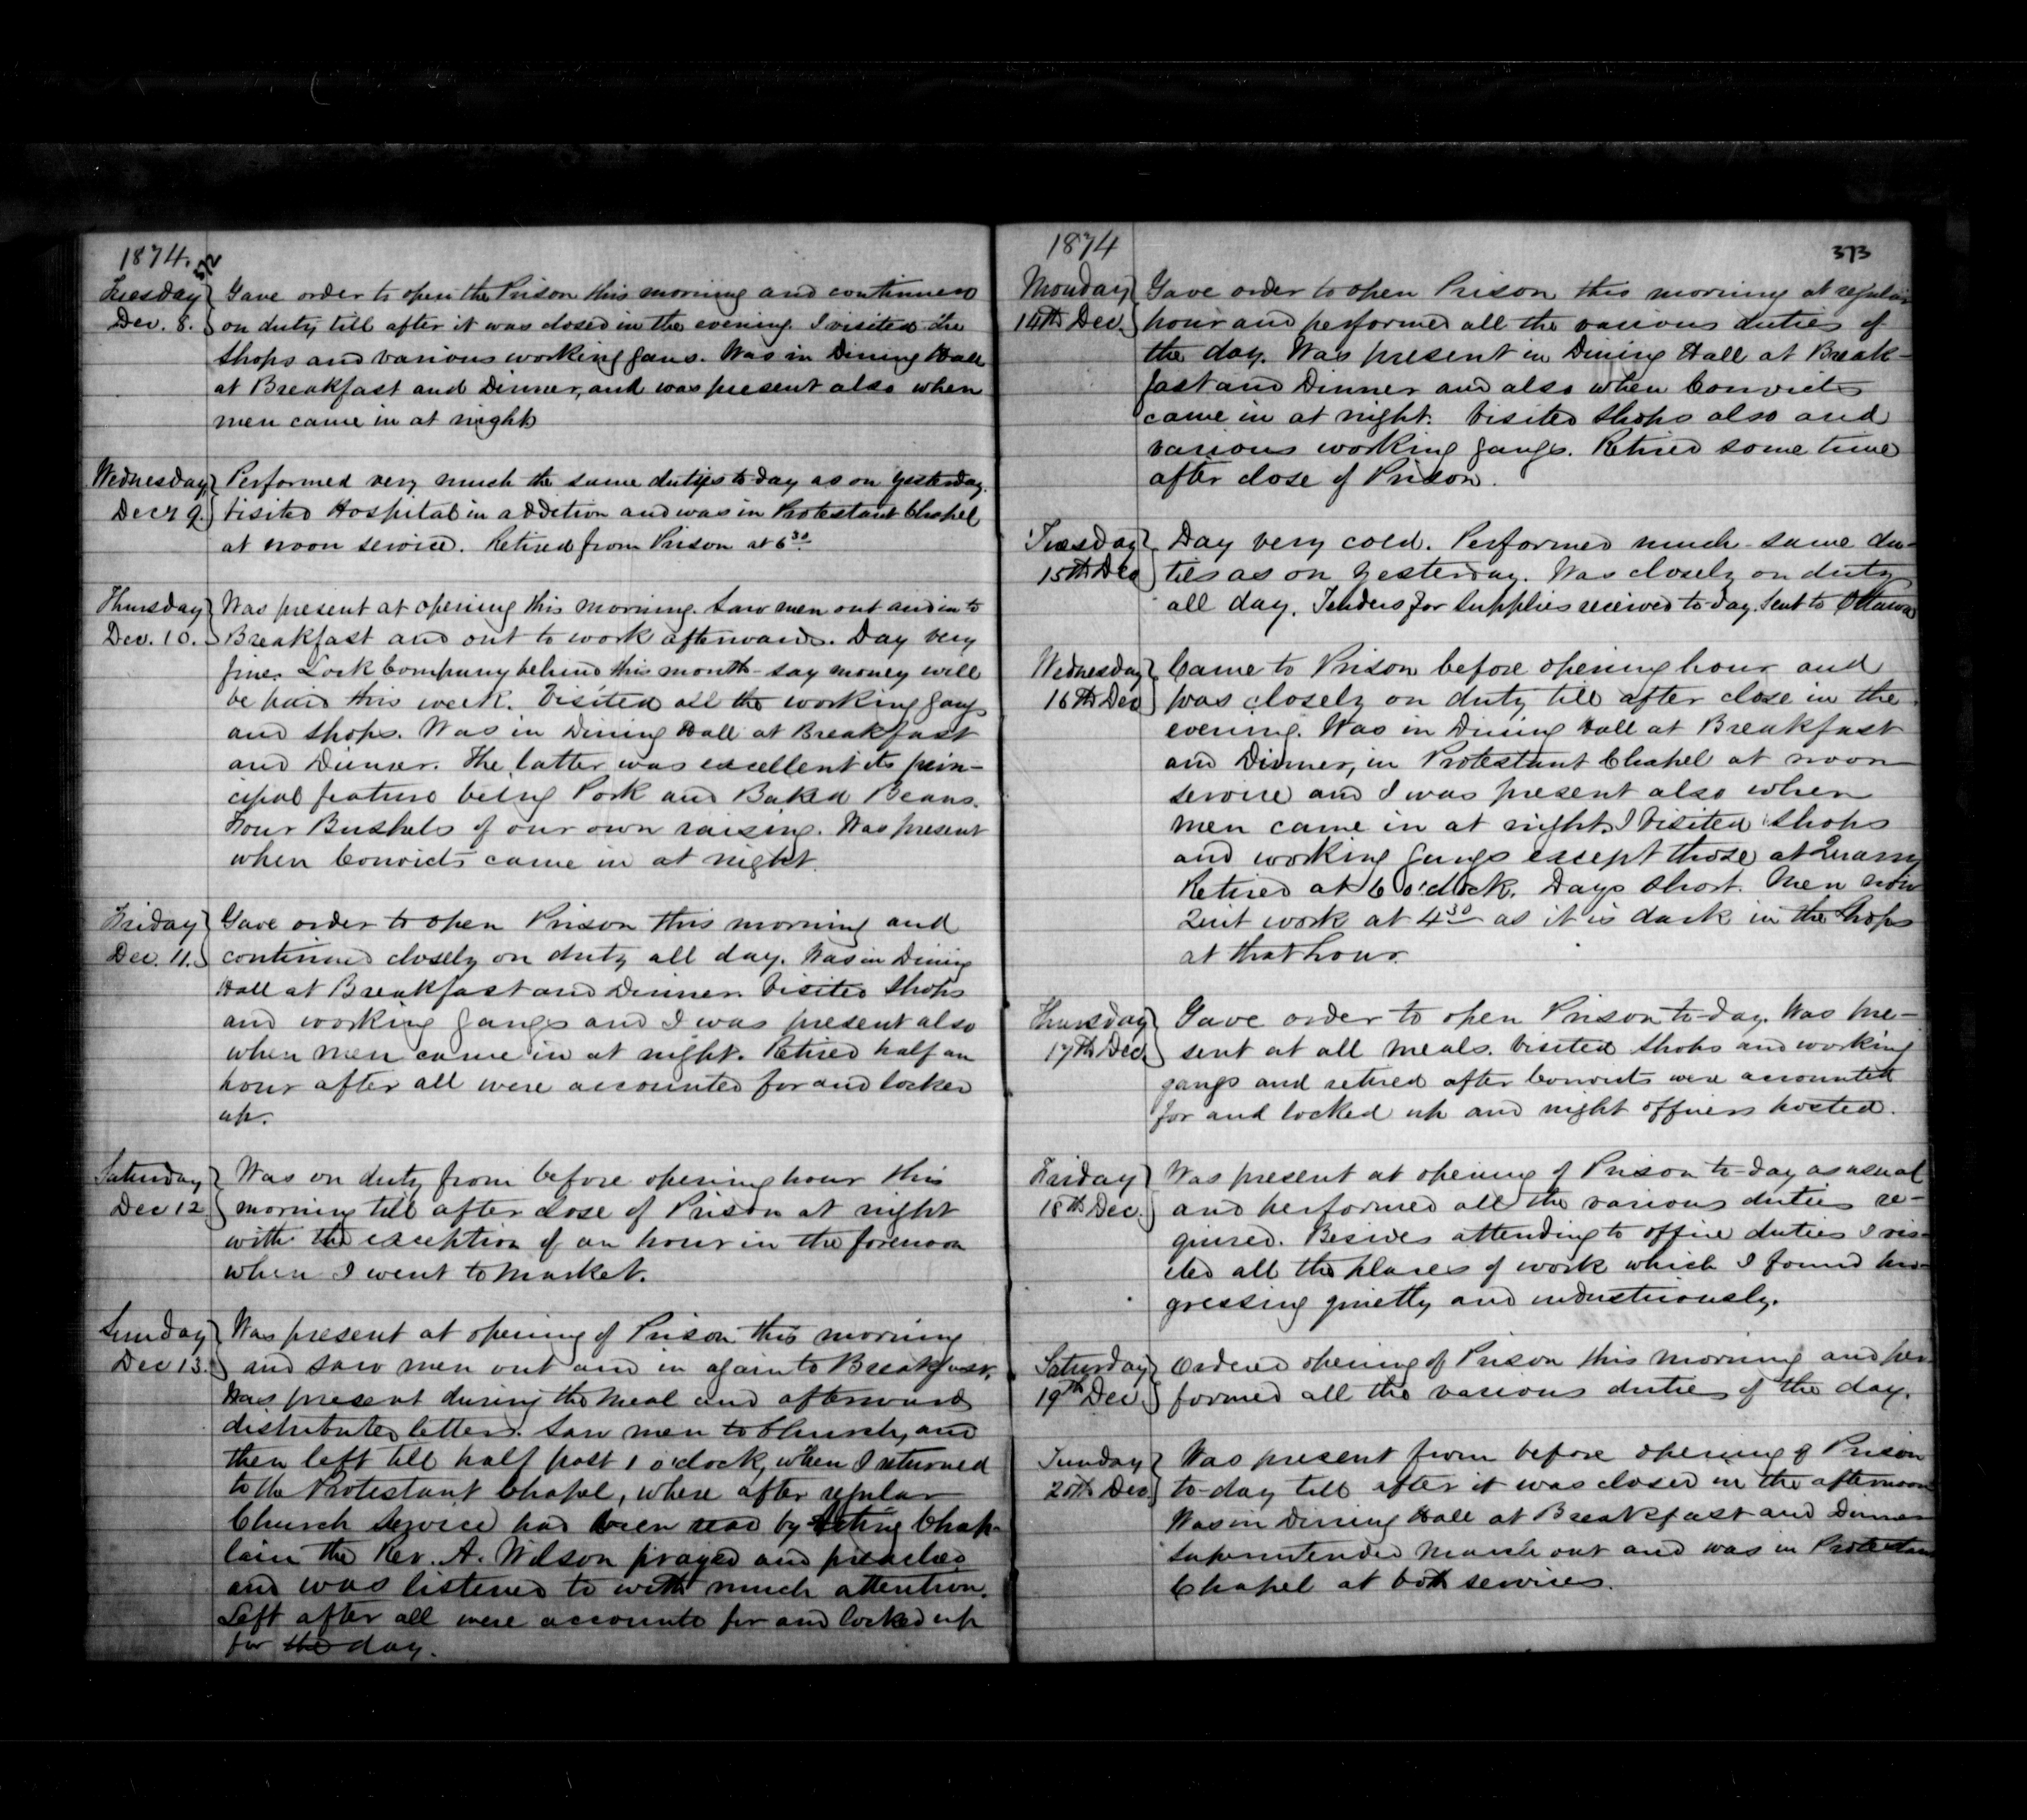 1874.
372
Tuesday Dec. 8. Gave order to open the Prison this morning and continued
on duty till after it was closed in the evening. I visited the
Shops and various working gans. Was in Dining Hall
at Breakfast and Dinner, and was present also when
men came in at night
Wednesday Dec 9. Performed very much the same duties to-day as on yesterday.
Visited Hospital in addition and was in Protestant Chapel
at noon service. Retired from Prison at 6 30
Thursday Dec. 10. Was present at opening this morning. Saw men out and in to
Breakfast and out to work afterwards. Day very
fine. Lock Company behind this month - say money will
be paid this week. Visited all the working gangs
and shops. Was in Dining Hall at Breakfast
and Dinner. The latter was excellent its prin-
cipal feature being Pork and Baked Beans.
Four Bushels of our own raising. Was present
when Convicts came in at night.
Friday Dec. 11. Gave order to open Prison this morning and
continued closely on duty all day. Was in Dining
Hall at Breakfast and Dinner. Visited Shops
and working gangs and I was present also
when men came in at night. Retired half an
hour after all were accounted for and locked
up.
Saturday Dec 12 Was on duty from before opening hour this
morning till after close of Prison at night
with the exception of an hour in the forenoon
when I went to Market.
Sunday Dec 13. Was present at opening of Prison this morning
and saw men out and in again to Breakfast.
Was present during the meal and afterwards
distributed letters. Saw men to Church, and
then left till half past 1 o'clock, when I returned
to the Protestant Chapel, where after regular
Church Service had been read by Acting Chap-
lain the Rev. A. Wilson prayed and preached
and was listened to with much attention.
Left after all were accounte for and locked up
for the day.
1874
373
Monday 14th Dec. Gave order to open Prison this morning at regular
hour and performed all the various duties of
the day. Was present in Dining Hall at Break-
fast and Dinner and also when Convicts
came in at night. Visited Shops also and
various working gangs. Retired some time
after close of Prison.
Tuesday 15th Dec Day very cold. Performed much same du-
ties as on yesterday. Was closely on duty
all day. Tenders for Supplies received to-day. Sent to Ottawa
Wednesday 16th Dec Came to Prison before opening hour and
was closely on duty till after close in the
evening. Was in Dining Hall at Breakfast
and Dinner, in Protestant Chapel at noon
service and I was present also when
men came in at night. I Visited Shops
and working gangs except those at Quarry
Retired at 6 o'clock. Days Short. Men now
Quit work at 4 30 as it is dark in the Shops
at that hour.
Thursday 17th Dec. Gave order to open Prison to-day. Was pre-
sent at all meals. Visited Shops and working
gangs and retired after Convicts were accounted
for and locked up and night officers posted.
Friday 18th Dec. Was present at opening of Prison to-day as usual
and performed all the various duties re-
quired. Besides attending to office duties I vis-
ited all the places of work which I found pro-
gressing quietly and industriously.
Saturday 19th Dec. Ordered opening of Prison this morning and per-
formed all the various duties of the day.
Sunday 20th Dec Was present from before opening of Prison
to-day till after it was closed in the afternoon
Was in Dining Hall at Breakfast and Dinner
Superintended March out and was in Protestant
Chapel at both services.